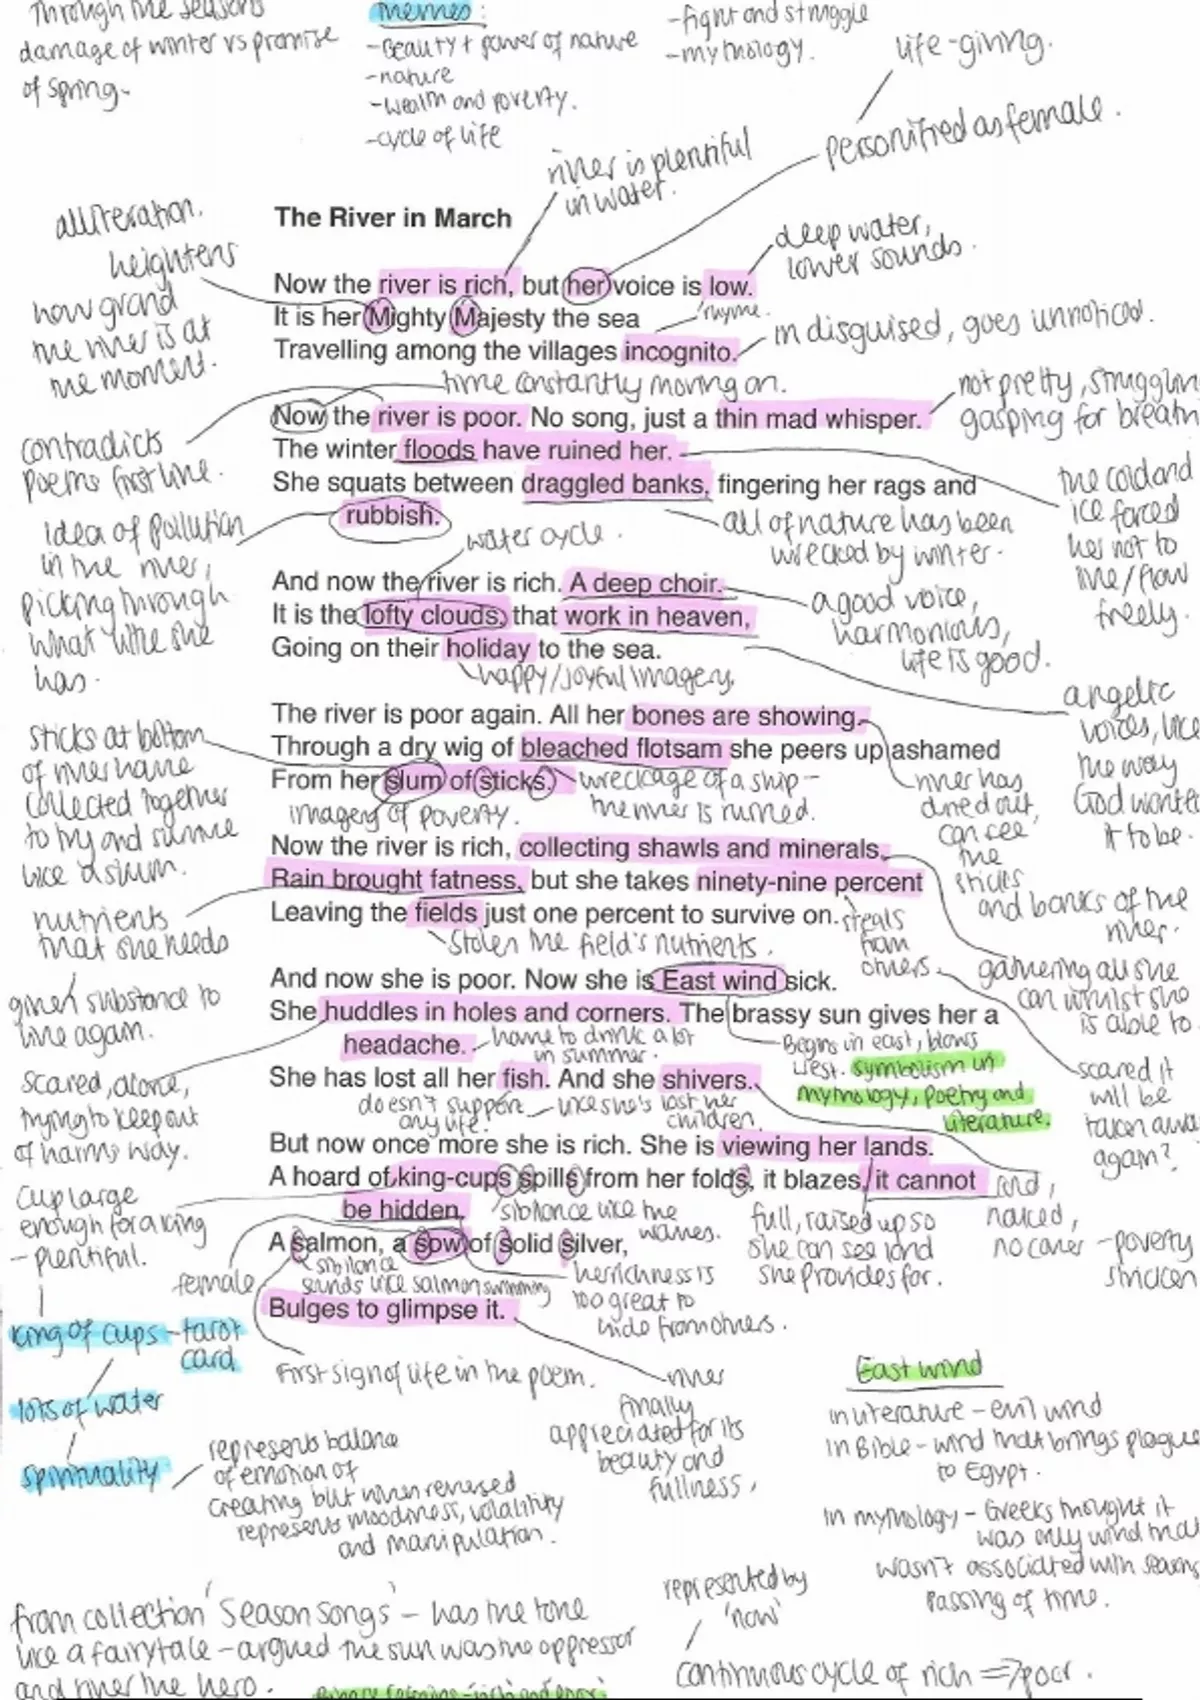 through the seasons
damage of winter vs promise
of spring.
Themes:
-Beauty + power of nature
-nature
-wealth and poverty.
-cycle of life
-fight and struggle
-mythology.
life-giving.
personified as female.
river is plentiful
in water.
alliteration.
heightens
how grand
the river is at
the moment.
The River in March
deep water,
lower sounds.
Now the river is rich, but her voice is low.
It is her Mighty Majesty the sea
rhyme.
Travelling among the villages incognito.
in disguised, goes unnoticed.
time constantly moving on.
Now the river is poor. No song, just a thin mad whisper.
not pretty, struggling
gasping for breath
The winter floods have ruined her.
contradicts
poems first line.
She squats between draggled banks, fingering her rags and
rubbish.
the cold and
ice forced
her not to
live/flow
freely.
idea of pollution
in the river,
picking through
what little she
has.
all of nature has been
wrecked by winter.
water cycle.
And now the river is rich. A deep choir.
It is the lofty clouds, that work in heaven,
Going on their holiday to the sea.
a good voice,
harmonious,
life is good.
happy/joyful imagery.
angelic
voices, like
the way
God wanted
it to be.
The river is poor again. All her bones are showing.
Through a dry wig of bleached flotsam she peers up ashamed
From her slum of sticks.
sticks at bottom
of river have
collected together
to try and survive
like a slum.
imagery of poverty.
wreckage of a ship -
the river is ruined.
river has
dried out,
can see
the
sticks
and banks of the
river.
Now the river is rich, collecting shawls and minerals.
Rain brought fatness, but she takes ninety-nine percent
Leaving the fields just one percent to survive on.
nutrients
that she needs
given substance to
live again.
stolen the field's nutrients.
steals
from
others
gathering all she
can whilst she
is able to
scared it
will be
taken away
again?
And now she is poor. Now she is East wind sick.
She huddles in holes and corners. The brassy sun gives her a
headache.
have to drink a lot
in summer.
Begins in east, blows
west. symbolism in
mythology, poetry and
literature.
scared, alone,
trying to keep out
of harms way.
She has lost all her fish. And she shivers.
doesn't support
any life.
like she's lost her
children.
But now once more she is rich. She is viewing her lands.
A hoard of king-cups spills from her folds, it blazes, it cannot
be hidden.
sibilance like the
waves.
full, raised up so
she can see land
she provides for.
cold,
naked,
no cover
-poverty
stricken
cup large
enough for a king
- plentiful.
A salmon, a sow of solid silver,
female
sibilance
sounds like salmon swimming
her richness is
too great to
hide from others.
Bulges to glimpse it.
First sign of life in the poem.
river
finally
appreciated for its
beauty and
fullness.
king of cups - tarot
card
lots of water
spirituality
represents balance
of emotion of
creating but when reversed
represents moodiness, volatility
and manipulation.
East wind
in literature - evil wind
in Bible - wind that brings plague
to Egypt.
in mythology - Greeks thought it
was only wind that
wasn't associated with seasons
passing of time.
represented by
'now'
continuous cycle of rich => poor.
from collection 'Season Songs' - has the tone
like a fairytale - argued the sun was the oppressor
and river the hero.